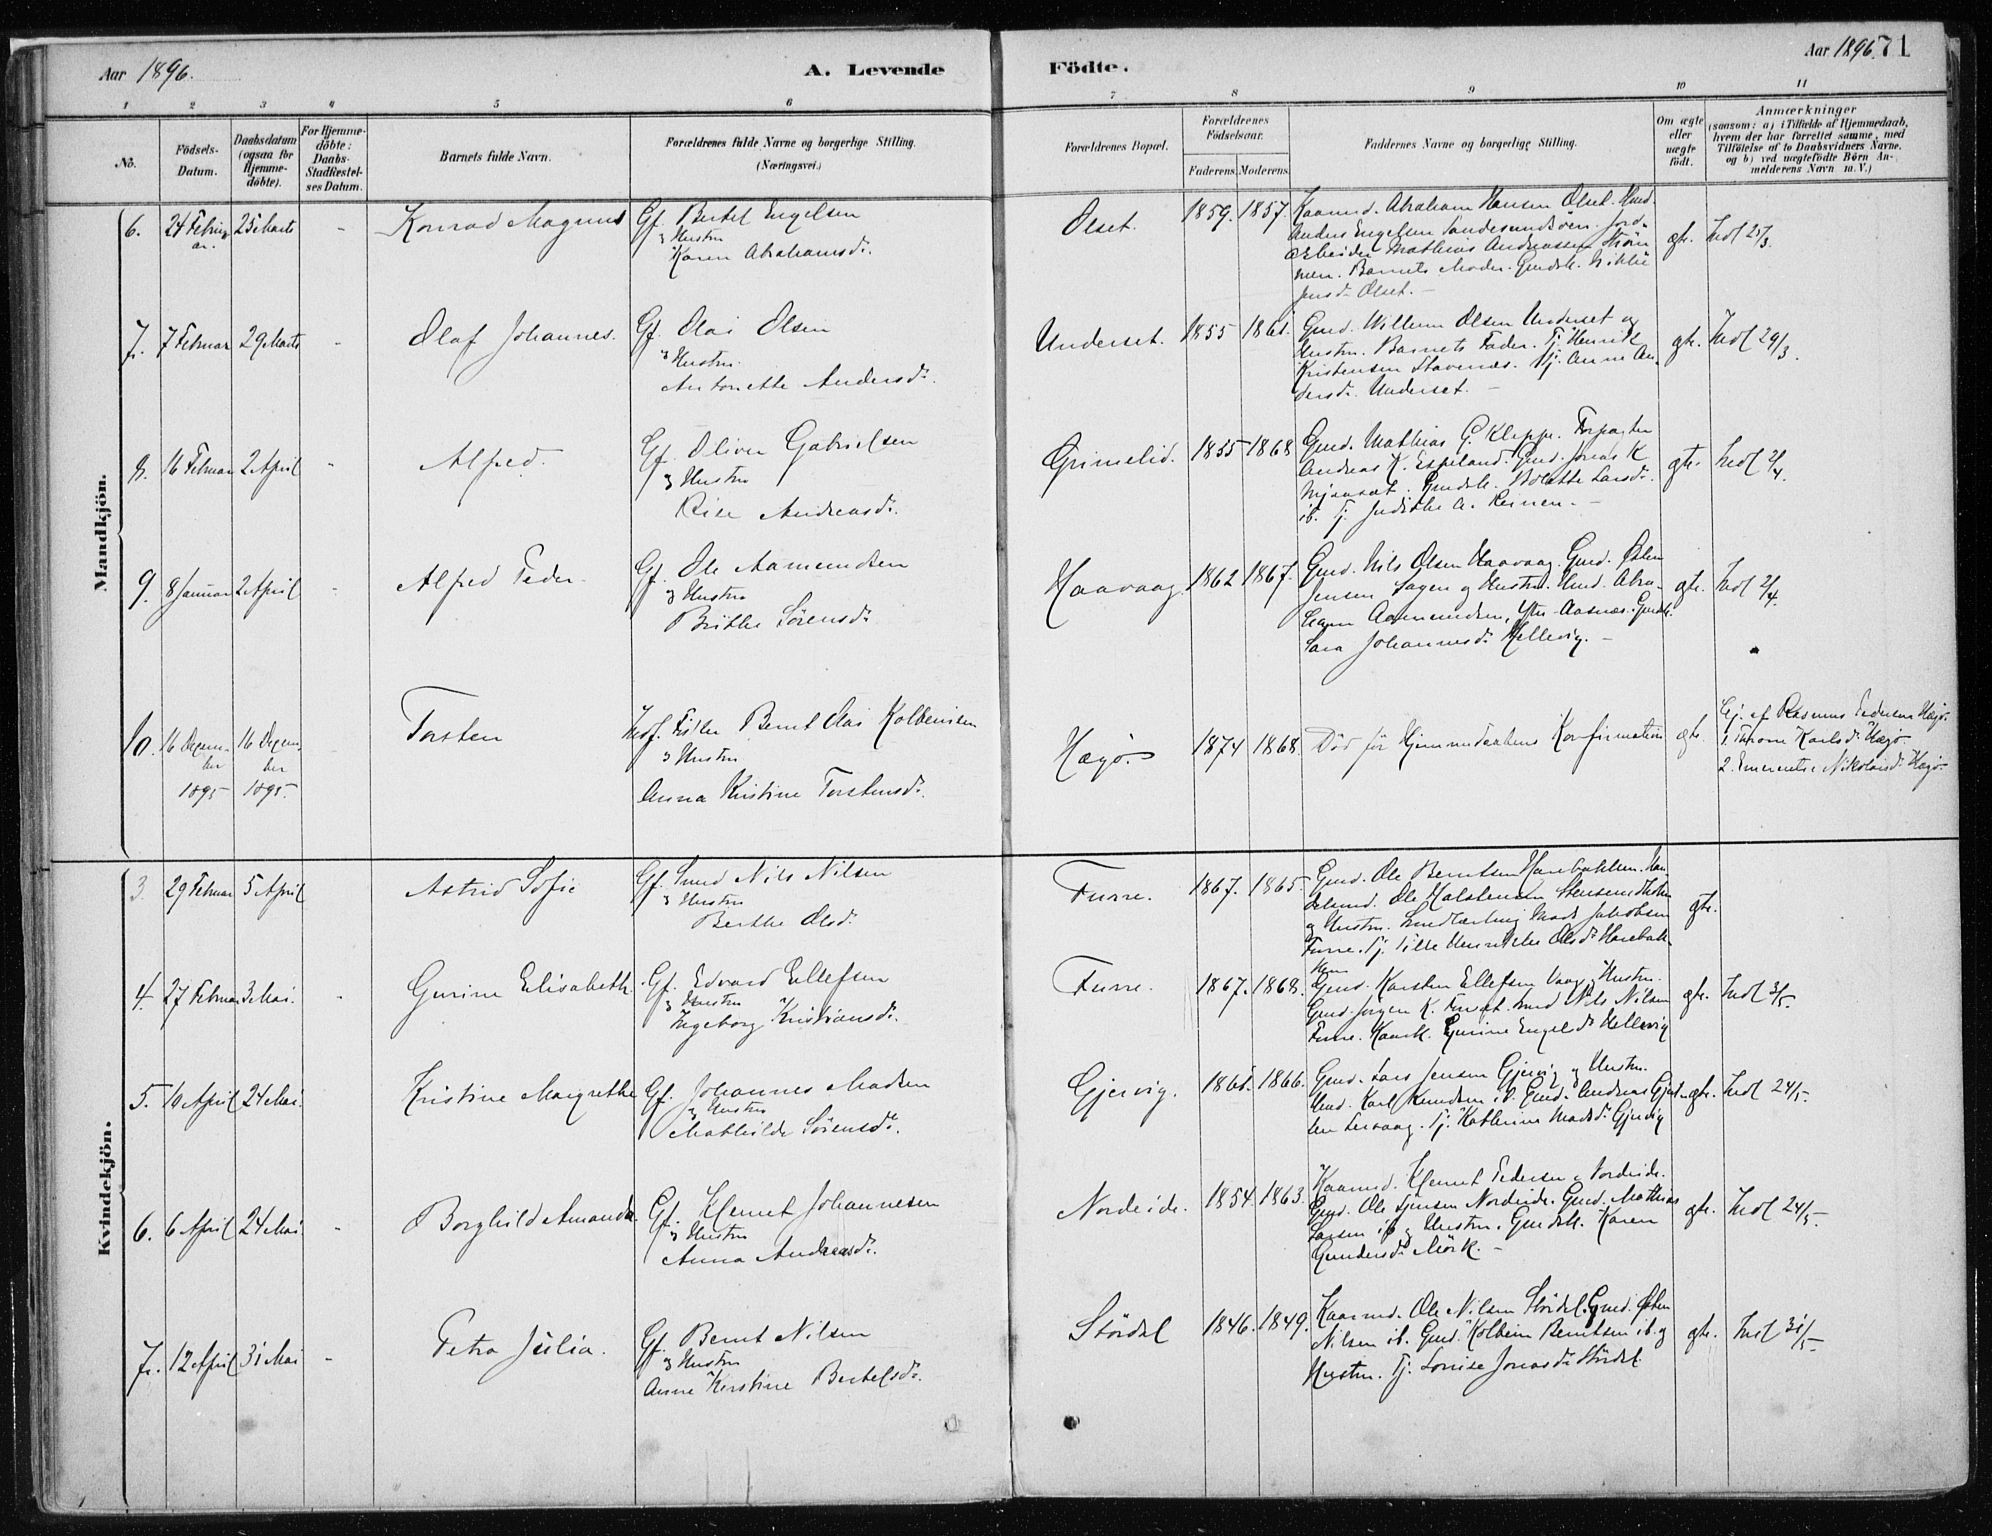 Aar 1896.
A. Levende Födte.
Aar 1896 71
1 2 3 4 5 6 7 8 9 10 11
No.
Födsels-
Datum.
Daabsdatum
(ogsaa for
Hjemme-
döbte).
For Hjemme-
döbte:
Daabs-
Stadfæstel-
ses Datum.
Barnets fulde Navn.
Forældrenes fulde Navne og borgerlige Stilling.
(Næringsvei.)
Forældrenes Bopæl.
Forældrenes
Födselsaar.
Faderens. Moderens.
Faddernes Navne og borgerlige Stilling.
Om ægte
eller
uægte
födt.
Anmærkninger
(saasom: a) i Tilfælde af Hjemmedaab,
hvem der har forrettet samme, med
Tilföielse af to Daabsvidners Navne,
og b) ved uægtefödte Börn An-
melderens Navn m. V.)
Mandkjön.
6. 24 Februar 25 Marts - Konrad Magnus
Gf. Bertel Engelsen
og Hustru
Karen Abrahamsd.
Olset. 1859. 1857.
Kaarmd. Abraham Hansen Olset. Husd.
Anders Engelsen Sandesundsöen. Jord-
arbeider Mathias Andreassen Ström
men. Barnets Moder. Gmdsk.
Jensd. Olset. -
gte. Indl 25/3
7. 7 Februar 29 Marts - Olaf Johannes.
Gf. Olai Olsen
og Hustru
Antonette Andersd.
Underset. 1855 1861
Gmd. Willum Olsen Underset og
Hustru. Barnets Fader. Tj. Henrik
Kristensen Stavenæs. Tj. Anne An-
dersd. Underset. -
gte. Indl 29/3.
8. 16 Februar 2 April - Alfred.
Gf. Oliver Gabrielsen
og Hustru
Andreasd.
Grimelid. 1855 1868
Gmd. Mathias G. Kleppe. Forpagter
Andreas K. Espeland. Gmd. Jonas K
Gmdsk. Bolette Larsd.
ib. Tj. Judithe A. Reinen. -
gte. Indl 2/4.
9. 8 Januar 2 April - Alfred Peder
Gf. Ole Aamundsen
og Hustru
Brithe Sörensd.
Haavaag 1862 1867.
Gmd. Nils Olsen Haavaag. Gmd.
Jensen Sagen og Hustru. Husd. Abra-
ham Aamundsen, Ytre Aasnæs. Gmdsk.
Sara Johannesd. Hellevig. -
gte. Indl 2/4.
10. 16 Decem- 16 Decem-
ber ber
1895 1895.
Torsten
Indf. Fisker Bernt Olai Kolbeinsen
og Hustru
Anna Kristine Torstensd.
Hægö. 1874 1868.
Död för Hjemmedaabens Konfirmation gte.
Gj. af Rasmus Pedersen Hægö.
1. Karlsd. Hægö
2. Emerentse Nikolaisd. Hægö.
Kvindekjön.
3. 29 Februar 5 April Astrid Sofie
Gf. Smed Nils Nilsen
og Hustru
Berthe Olsd.
Furre. 1867. 1865.
Gmd. Ole Berntsen Harebakken. Han-
delsmd. Ole Halstensen Stensundholm
og Hustru. Smedlærling Mads Jakobsen
Furre. Tj. Henrikke Olsd. Harebak-
ken
gte.
4. 27 Februar 3 Mai. - Gurine Elisabeth.
Gf. Edvard Ellefsen
og Hustru
Ingeborg Kristiansd.
Furre. 1867. 1868.
Gmd. Karsten Ellefsen Vaag og Hustru.
Gmd. Jörgen K. Furre. Smed Nils Nilsen
Furre. Kaark. Gurine Engelsd. Hellevig
gte. Indl 3/5.
5. 10 April 24 Mai. Kristine Margrethe
Gf. Johannes Madsen
og Hustru
Mathilde Sörensd.
Gjervig. 1861. 1866.
Gmd. Lars Jensen Gjervig og Hustru.
Husd. Karl Knudsen ib. Gmd. Andreas
Tj. Kathrine Madsd. Gjervig
gte. Indl 24/5.
6. 6 April 24 Mai. - Borghild Amanda.
Gf. Klemet Johannesen
og Hustru
Anna Andreasd.
Nordeide. 1854. 1863.
Kaarmd. Klemet Pedersen Nordeide.
Gmd. Ole Nordeide. Gmd. Mathias
Larsen ib. og Hustru. Gmdsk. Karen
Gundersd. Mörk. -
gte. Indl 24/5.
7. 12 April 31 Mai - Petra Julia.
Gf. Bernt Nilsen
og Hustru
Anne Kirstine Bertelsd.
Stördal 1846. 1849.
Kaarmd. Ole Nilsen Stördal. Gmd.
Nilsen ib. Gmd. Kolbein Berntsen ib. og
Hustru. Tj. Lovise Jonasd. Stördal.
gte. Indl 31/5.